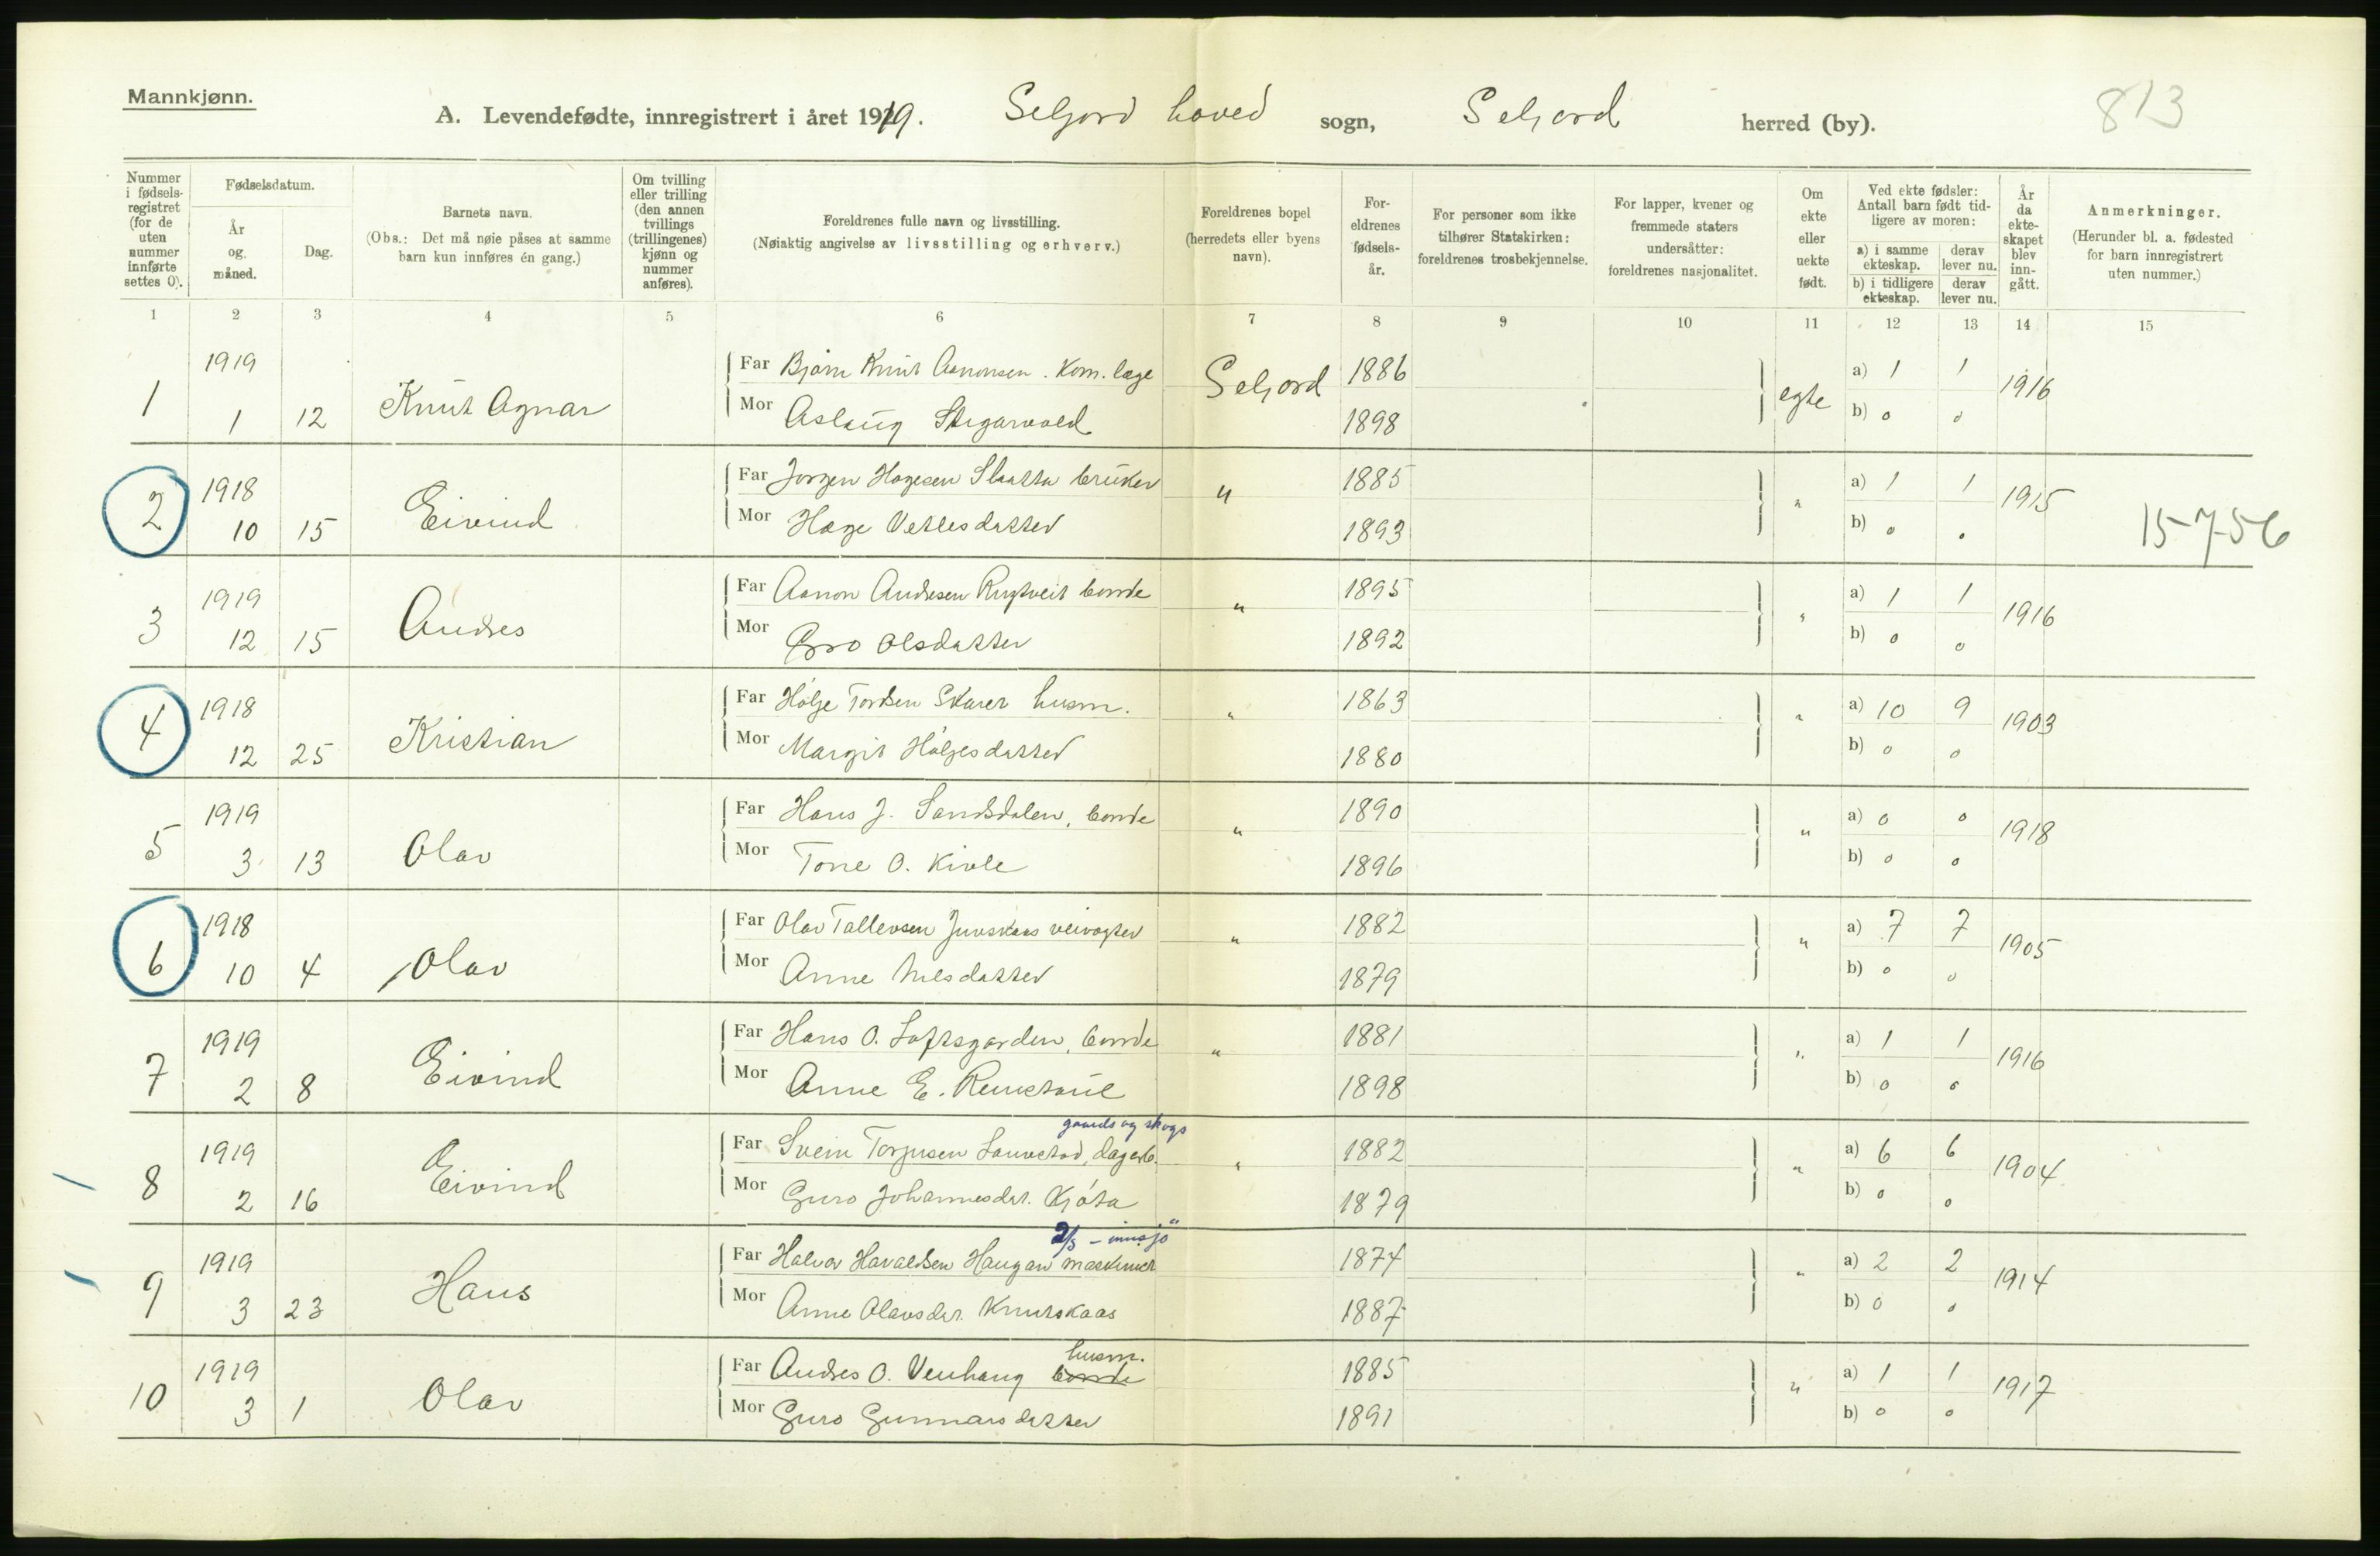 Mannkjønn.
A. Levendefødte, innregistrert i året 1919. Seljord hoved sogn, Seljord herred (by). 813
Nummer i fødsels-registret (for de uten nummer innførte settes 0).
Fødselsdatum.
År og måned.
Dag.
Barnets navn.
(Obs.: Det må nøie påses at samme barn kun innføres én gang.)
Om tvilling eller trilling (den annen tvillings (trillingenes) kjønn og nummer anføres).
Foreldrenes fulle navn og livsstilling.
(Nøiaktig angivelse av livsstilling og erhverv.)
Foreldrenes bopel (herredets eller byens navn).
For-eldrenes fødsels-år.
For personer som ikke tilhører Statskirken: foreldrenes trosbekjennelse.
For lapper, kvener og fremmede staters undersåtter: foreldrenes nasjonalitet.
Om ekte eller uekte født.
Ved ekte fødsler: Antall barn født tid-ligere av moren:
a) i samme ekteskap.
derav lever nu.
b) i tidligere ekteskap.
derav lever nu.
År da ekte-skapet blev inn-gått.
Anmerkninger.
(Herunder bl. a. fødested for barn innregistrert uten nummer.)
1 2 3 4 5 6 7 8 9 10 11 12 13 14 15
1919 Far Bjørn Knut Aanonsen. Kom. læge Seljord 1886 a) 1 1
1 1 12 Knut Agnar egte 1916
Mor Aslaug 1898 b) 0 0
1918 Far Jorgen Hogesen Slaatta bruker " 1885 a) 1 1
2 10 15 Eivind " 1915 15-7-56
Mor Hæge Vetlesdatter 1893 b) 0 0
1919 Far Aanon Andresen Rugtveit bonde " 1895 a) 1 1
3 12 15 Andres " 1916
Mor Gro Olsdatter 1892 b) 0 0
1918 Far Hølje Tordsen Skarer husm. " 1863 a) 10 9
4 12 25 Kristian " 1903
Mor Margit Høljesdatter 1880 b) 0 0
1919 Far Hans J. Sandsdalen, bonde " 1890 a) 0 0
5 3 13 Olav " 1918
Mor Tone O. Kivle 1896 b) 0 0
1918 Far Olav Tallevsen Juvskaas veivogter " 1882 a) 7 7
6 10 4 Olav " 1905
Mor Anne Nilsdatter 1879 b) 0 0
1919 Far Hans O. Loftsgarden, bonde " 1881 a) 1 1
7 2 8 Eivind " 1916
Mor Anne E. 1898 b) 0 0
gaards og skogs
1919 Far Svein Torjusen dagarb. " 1882 a) 6 6
8 2 16 Eivind " 1904
Mor Guro Johannesdat. Kjøta 1879 b) 0 0
D/S - innsjö
1919 Far Halvor Havaldsen Haugan maskiner 1874 a) 2 2
9 3 23 Hans " 1914
Mor Anne Olavsdat. Knutskaas 1887 b) 0 0
husm.
1919 Far Andres O. Venhaug bonde 1885 a) 1 1
10 3 1 Olav " 1917
Mor Guro Gunnarsdatter 1891 b) 0 0